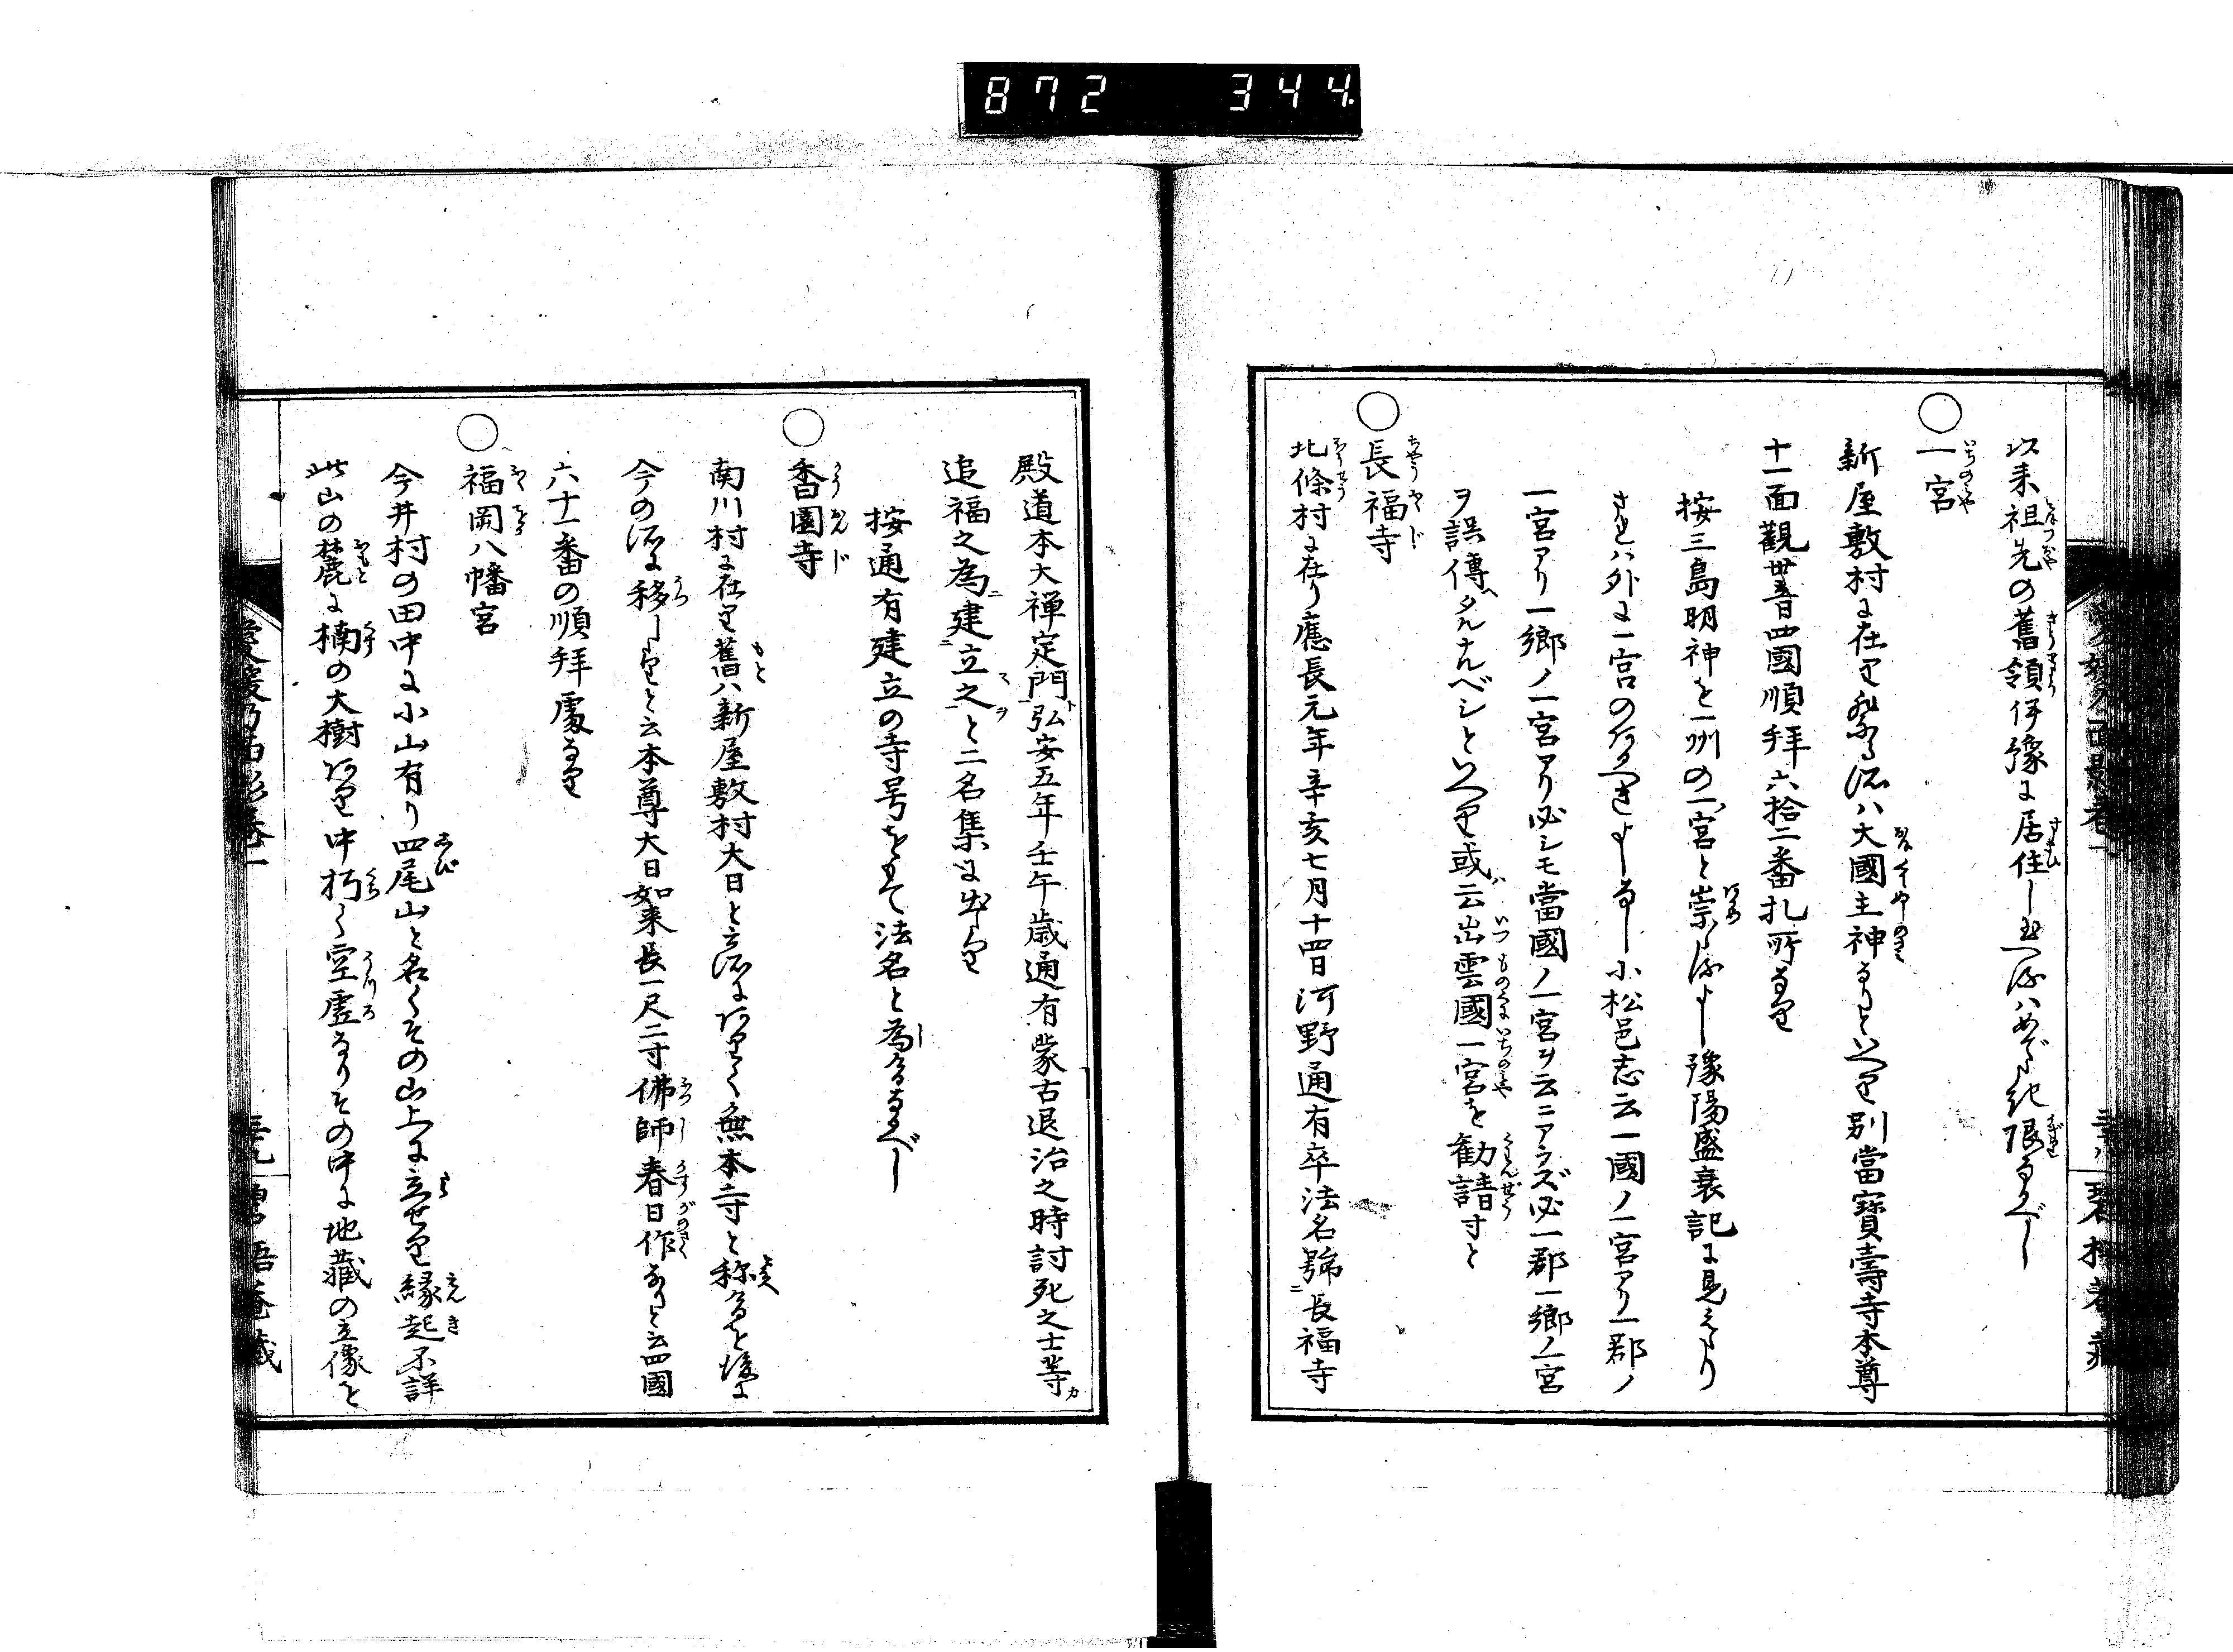 872 344
以来祖先の舊領伊豫に居住し玉へるハめでたき限なるべし
○一宮
新屋敷村に在り祭る所ハ大國主神なりといへり別當寶壽寺本尊
十一面觀世音四國順拝六拾二番札所なり
按三島明神を一州の一宮と崇るよし豫陽盛衰記に見えたり
されハ外に一宮のあるべきよしなし小松邑志云一國ノ一宮アリ一郡ノ
一宮アリ一郷ノ一宮アリ必シモ當國ノ一宮ヲ云ニアラズ必一郡一郷ノ一宮
ヲ誤傳ヘタルナルベシといへり或ハ云出雲國一宮を勧請すと
○長福寺
北條村に在り應長元年辛亥七月十四日河野通有卒法名號ニ長福寺
殿道本大禅定門ト弘安五年壬午歳通有蒙古退治之時討死之士等カ
追福之為ニ建立之ヲと二名集に出たり
按通有建立の寺号をもて法名と為しゝなるべし
○香園寺
南川村に在り舊ハ新屋敷村大日と云所にありて無本寺と称へしを後に
今の所に移したりと云本尊大日如来長一尺二寸佛師春日作なりと云四國
六十一番の順拝處なり
○福岡八幡宮
今井村の田中に小山有り四尾山と名くその山上に立せり縁起不詳
此山の麓に楠の大樹あり中朽く空虚なりその中に地蔵の立像を
愛媛乃面影巻一
碧梧菴藏